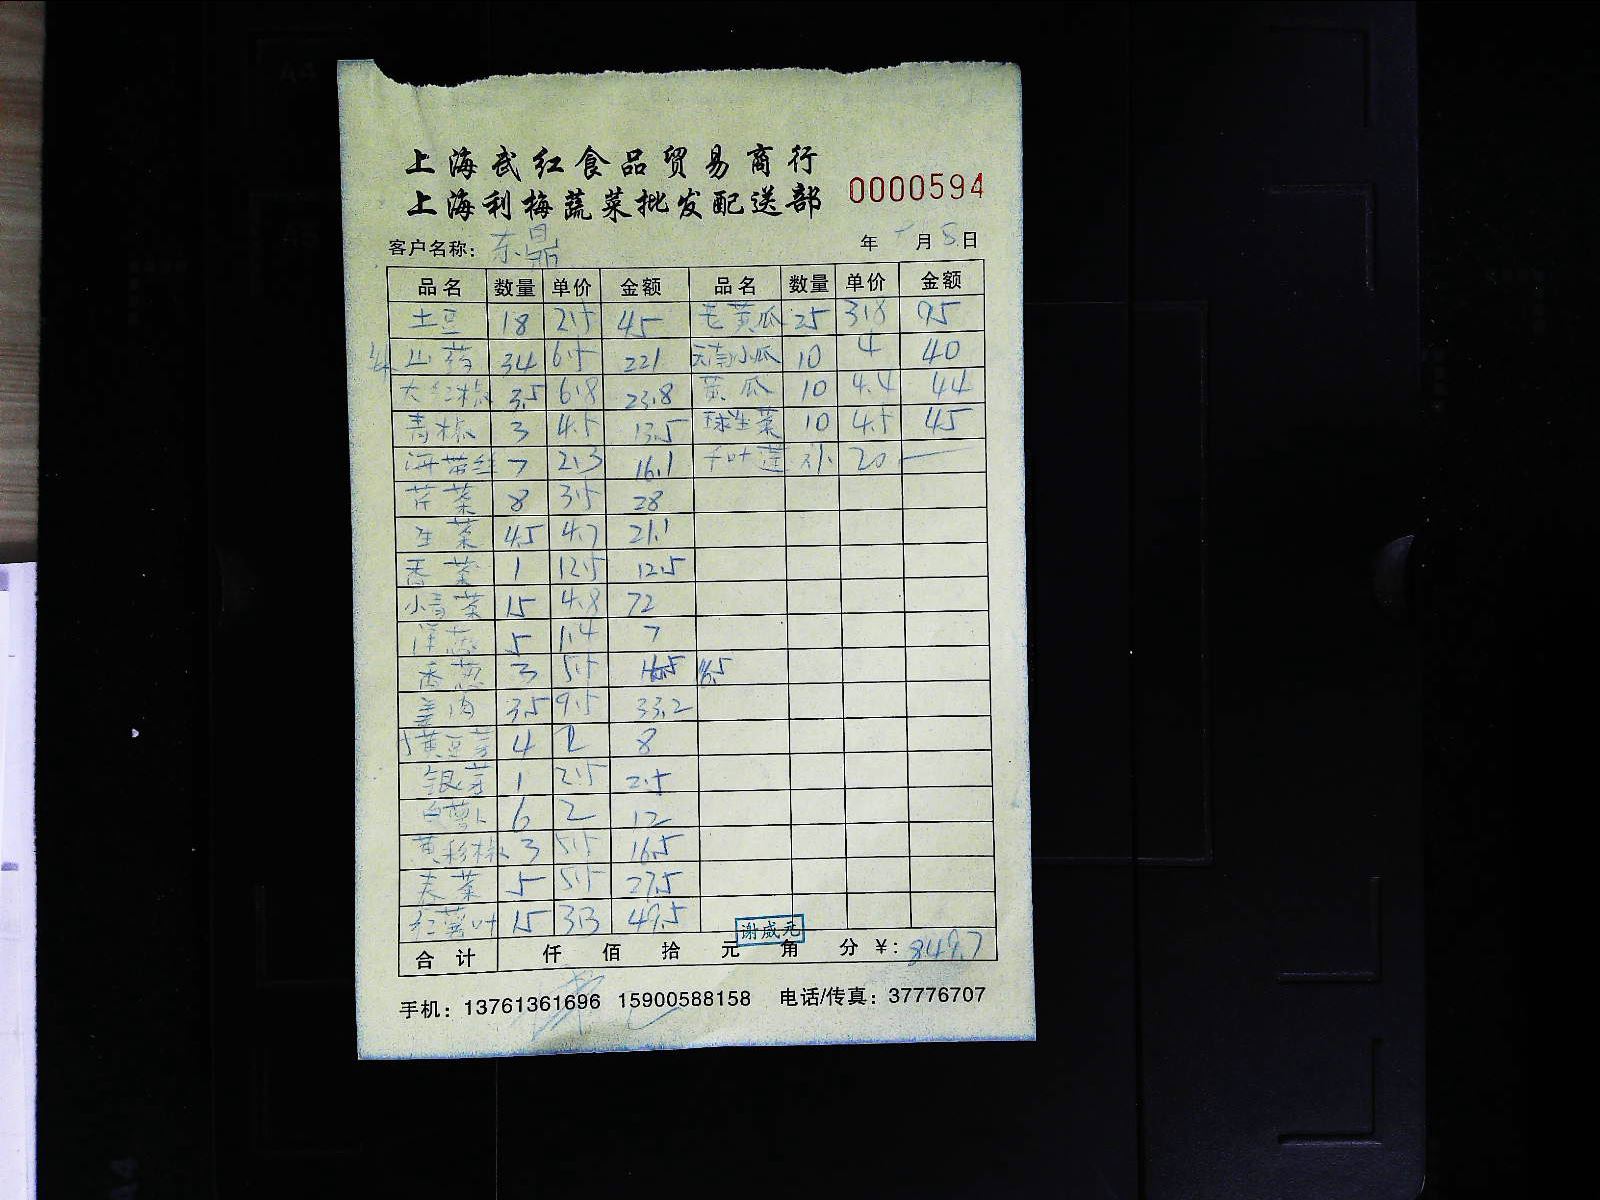 上海武红食品贸易商行
上海利梅蔬菜批发配送部
0000594
客户名称：东鼎 年 月 8日
品名 数量 单价 金额 品名 数量 单价 金额
土豆 18 2.5 45 老黄瓜 25 3.8 95
山药 34 6.5 221 小瓜 10 4 40
大红椒 3.5 6.8 23.8 黄瓜 10 4.4 44
青椒 3 4.5 13.5 球生菜 10 4.5 45
海带丝 7 2.3 16.1 千叶 20 —
芹菜 8 3.5 28
生菜 4.5 4.7 21.1
香菜 1 12.5 12.5
小青菜 15 4.8 72
洋葱 5 1.4 7
香葱 3 5.5 16.5 16.5
姜肉 3.5 9.5 33.2
黄豆芽 4 2 8
银芽 1 2.5 2.5
白萝卜 6 2 12
黄彩椒 3 5.5 16.5
夫菜 5 5.5 27.5
红薯叶 15 3.3 49.5
谢威元
合计 仟 佰 拾 元 角 分 ¥：849.7
手机：13761361696 15900588158 电话/传真：37776707